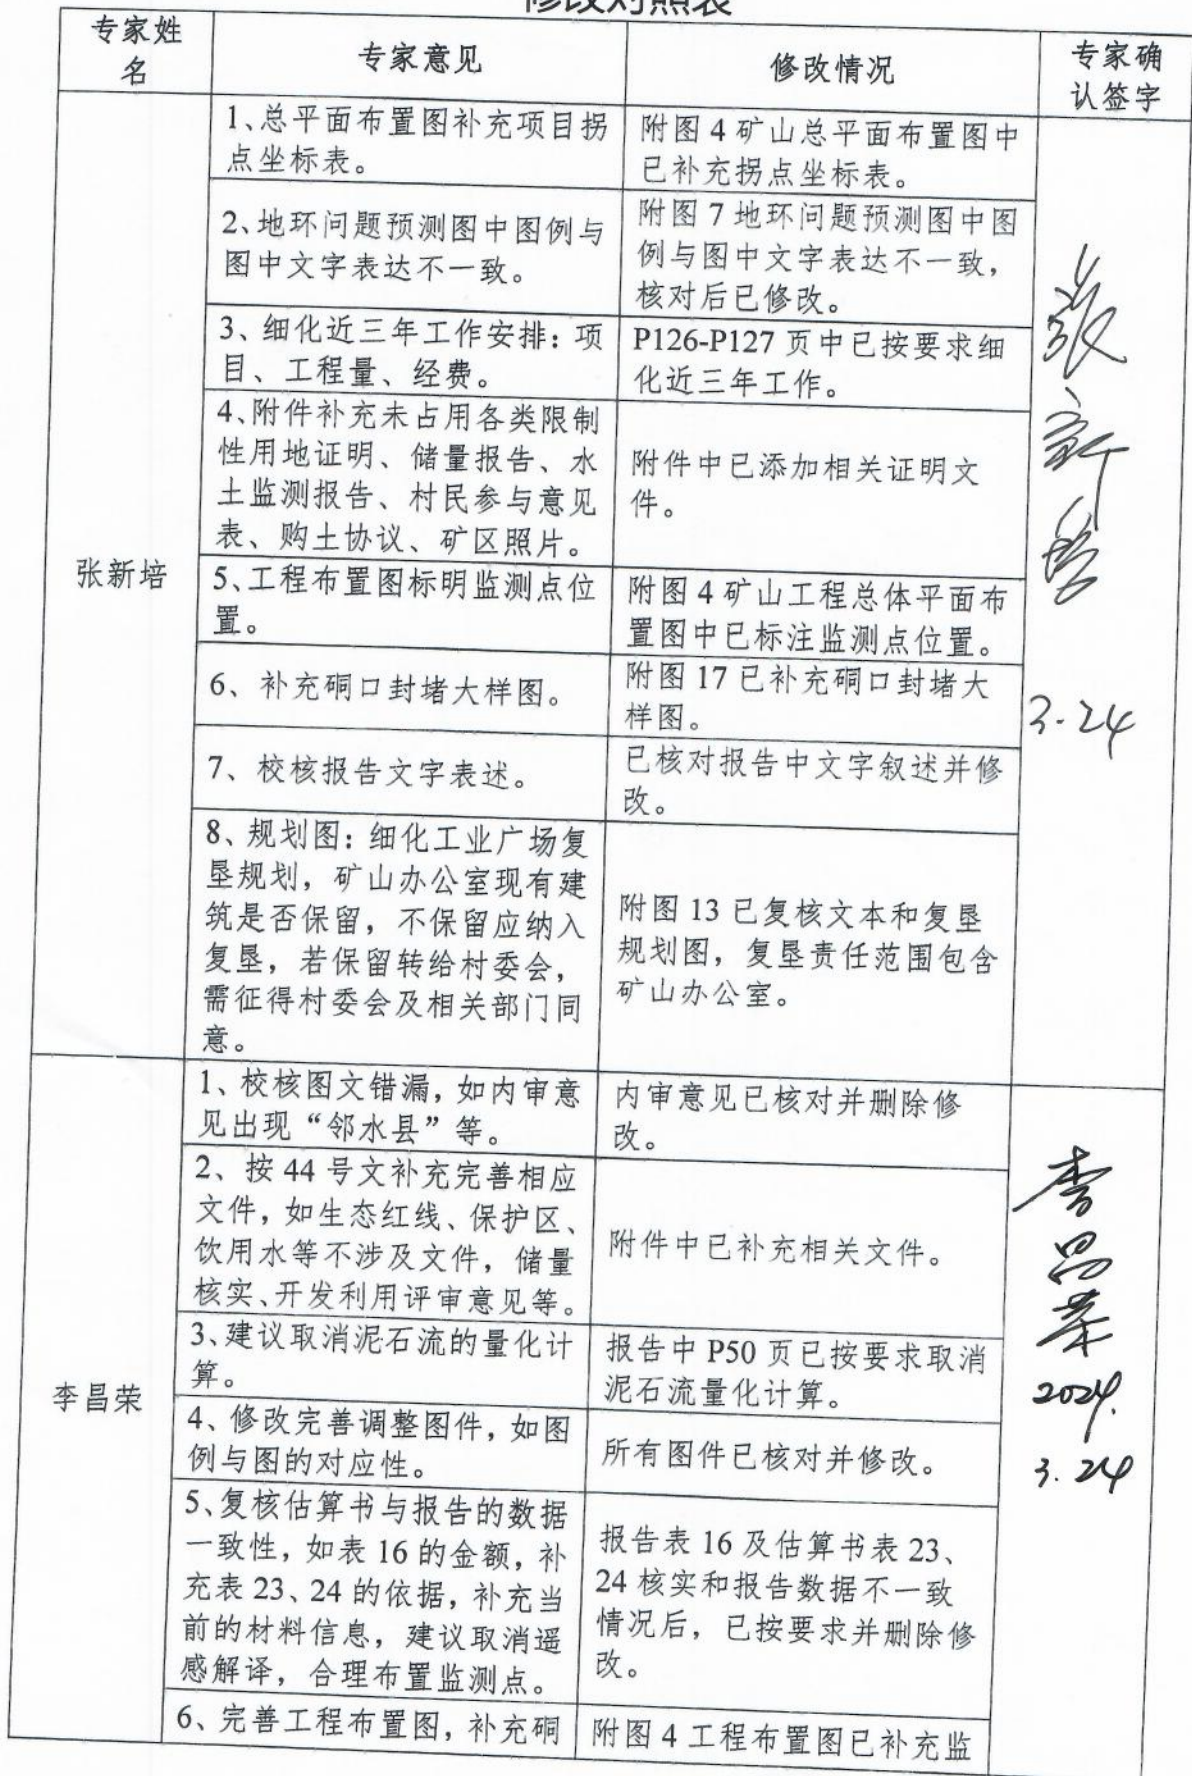 修改对照表
专家姓
名
专家意见
修改情况
专家确
认签字
张新培
1、总平面布置图补充项目拐
点坐标表。
附图 4 矿山总平面布置图中
已补充拐点坐标表。
2、地环问题预测图中图例与
图中文字表达不一致。
附图 7 地环问题预测图中图
例与图中文字表达不一致，
核对后已修改。
3、细化近三年工作安排：项
目、工程量、经费。
P126-P127 页中已按要求细
化近三年工作。
4、附件补充未占用各类限制
性用地证明、储量报告、水
土监测报告、村民参与意见
表、购土协议、矿区照片。
附件中已添加相关证明文
件。
5、工程布置图标明监测点位
置。
附图 4 矿山工程总体平面布
置图中已标注监测点位置。
6、补充硐口封堵大样图。
附图 17 已补充硐口封堵大
样图。
7、校核报告文字表述。
已核对报告中文字叙述并修
改。
8、规划图：细化工业广场复
垦规划，矿山办公室现有建
筑是否保留，不保留应纳入
复垦，若保留转给村委会，
需征得村委会及相关部门同
意。
附图 13 已复核文本和复垦
规划图，复垦责任范围包含
矿山办公室。
张新培
3.24
李昌荣
1、校核图文错漏，如内审意
见出现“邻水县”等。
内审意见已核对并删除修
改。
2、按 44 号文补充完善相应
文件，如生态红线、保护区、
饮用水等不涉及文件，储量
核实、开发利用评审意见等。
附件中已补充相关文件。
3、建议取消泥石流的量化计
算。
报告中 P50 页已按要求取消
泥石流量化计算。
4、修改完善调整图件，如图
例与图的对应性。
所有图件已核对并修改。
5、复核估算书与报告的数据
一致性，如表 16 的金额，补
充表 23、24 的依据，补充当
前的材料信息，建议取消遥
感解译，合理布置监测点。
报告表 16 及估算书表 23、
24 核实和报告数据不一致
情况后，已按要求并删除修
改。
6、完善工程布置图，补充硐
附图 4 工程布置图已补充监
李昌荣
2024.
3.24